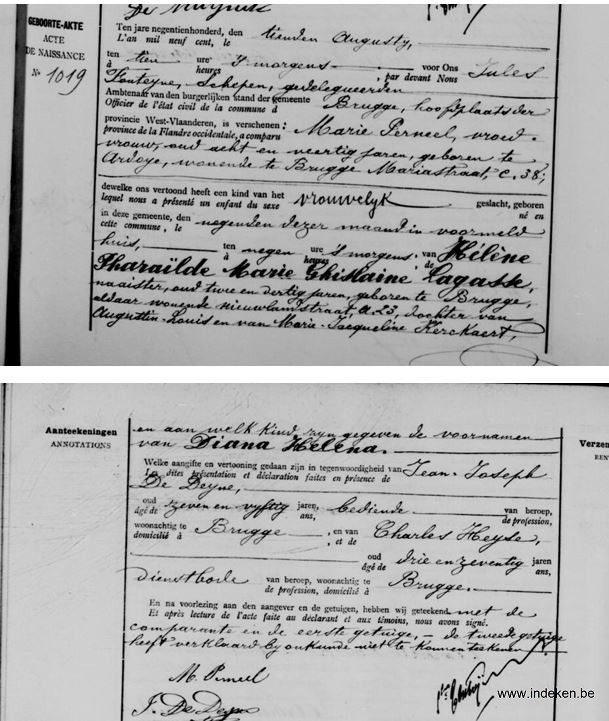 GEBOORTE-AKTE
ACTE
DE NAISSANCE
Nº 1019
Ten jare negentienhonderd, den tienden Augusty,
L'an mil neuf cent, le
ten tien ure 's morgens voor Ons Jules
à heures , par devant Nous
Fonteyne, Schepen, gedelegueerden
Ambtenaar van den burgerlijken stand der gemeente Brugge, hoofdplaats der
Officier de l'état civil de la commune d
provincie West-Vlaanderen, is verschenen: Marie Perneel, vroed-
province de la Flandre occidentale, a comparu
vrouw, oud acht en veertig jaren, geboren te
Ardoye, wonende te Brugge Mariastraat, C. 38;
dewelke ons vertoond heeft een kind van het vrouwelyk geslacht, geboren
lequel nous a présenté un enfant du sexe né en
in deze gemeente, den negenden dezer maand in voormeld
cette commune, le
huis, ten negen ure 's morgens van Hélène
à heures de
Pharaïlde Marie Ghislaine Lagasse,
naaister, oud twee en dertig jaren, geboren te Brugge,
aldaar wonende nieuwlandstraat, A. 23, dochter van
Augustin-Louis en van Marie-Jacqueline Kerckaert,
Aanteekeningen
ANNOTATIONS
en aan welk kind zyn gegeven de voornamen
van Diana Helena.
Welke aangifte en vertooning gedaan zijn in tegenwoordigheid van Jean-Joseph
Les dites présentation et déclaration faites en présence de
De Deyne,
oud zeven en vyftig jaren, bediende van beroep,
âgé de ans, de profession,
woonachtig te Brugge , en van Charles Heyse,
domicilié à et de
oud drie en zeventig jaren
âgé de ans,
dienstbode van beroep, woonachtig te Brugge.
de profession, domicilié à
En na voorlezing aan den aangever en de getuigen, hebben wij geteekend met de
Et après lecture de l'acte faite au déclarant et aux témoins, nous avons signé.
comparante en de eerste getuige, – de tweede getuige
heeft verklaard by onkunde niet te kunnen teekenen.
M. Perneel
J. De Deyne
www.indeken.be